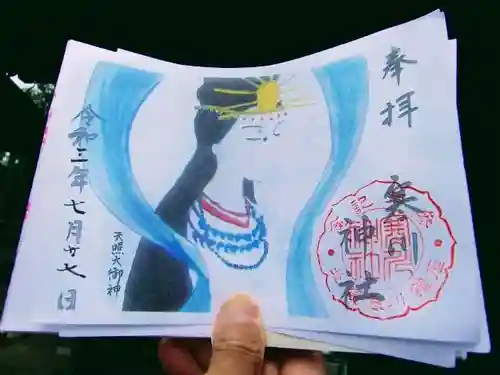 奉拝
寒川神社
天照大御神
令和二年七月廿七日